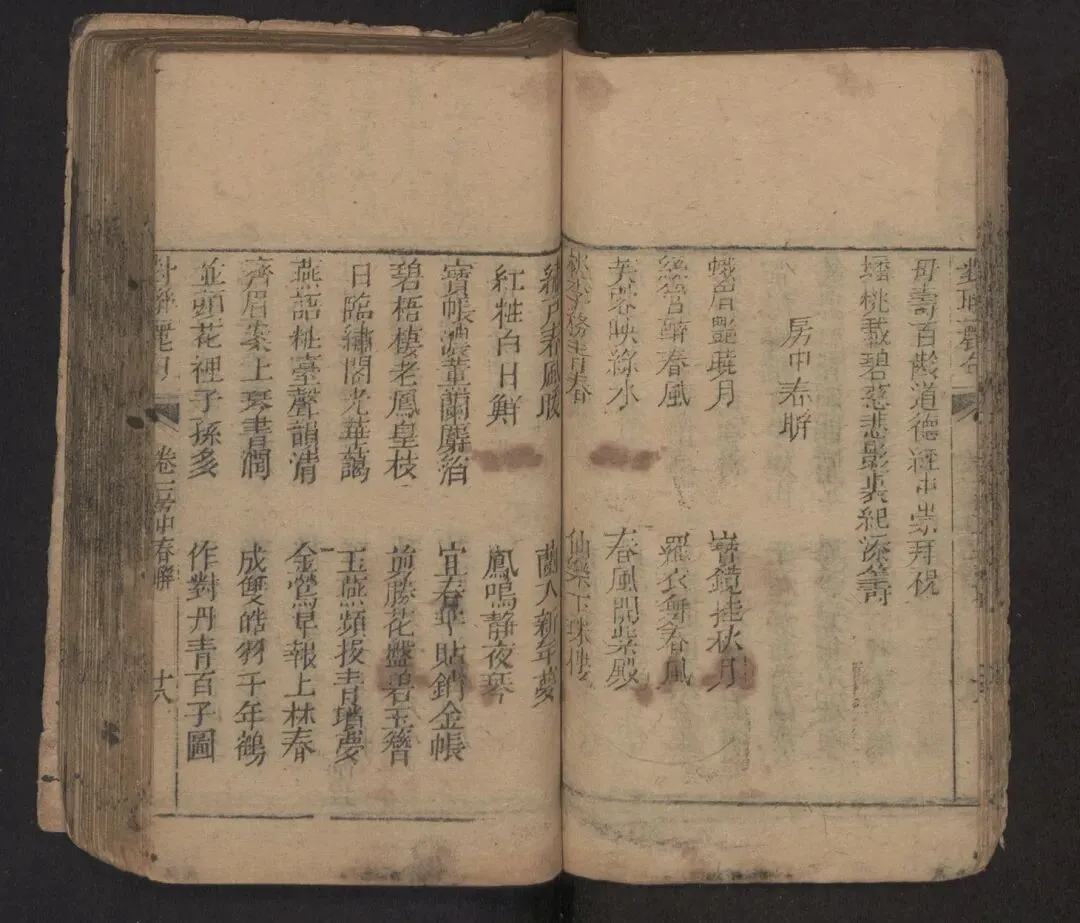 母壽百齡道德經中崇拜祝
蟠桃載碧慈悲影裏紀添籌
房中春聯
蛾眉艷曉月 寶鏡挂秋月
絃管醉春風 羅衣舞春風
芙蓉映綠水 春風開紫殿
桃李務青春 仙樂下珠樓
繡戶春風暖 蘭入新年夢
紅粧白日鮮 鳳鳴靜夜琴
寶帳濃薰蘭麝洽 宜春華貼銷金帳
碧梧棲老鳳皇枝 剪勝花盤碧玉簪
日臨繡閣光華藹 玉燕頻投青瑣夢
燕語粧臺聲韻清 金鶯早報上林春
齊眉案上琴書潤 成雙皓羽千年鶴
並頭花裡子孫多 作對丹青百子圖
卷二房中春聯 十八